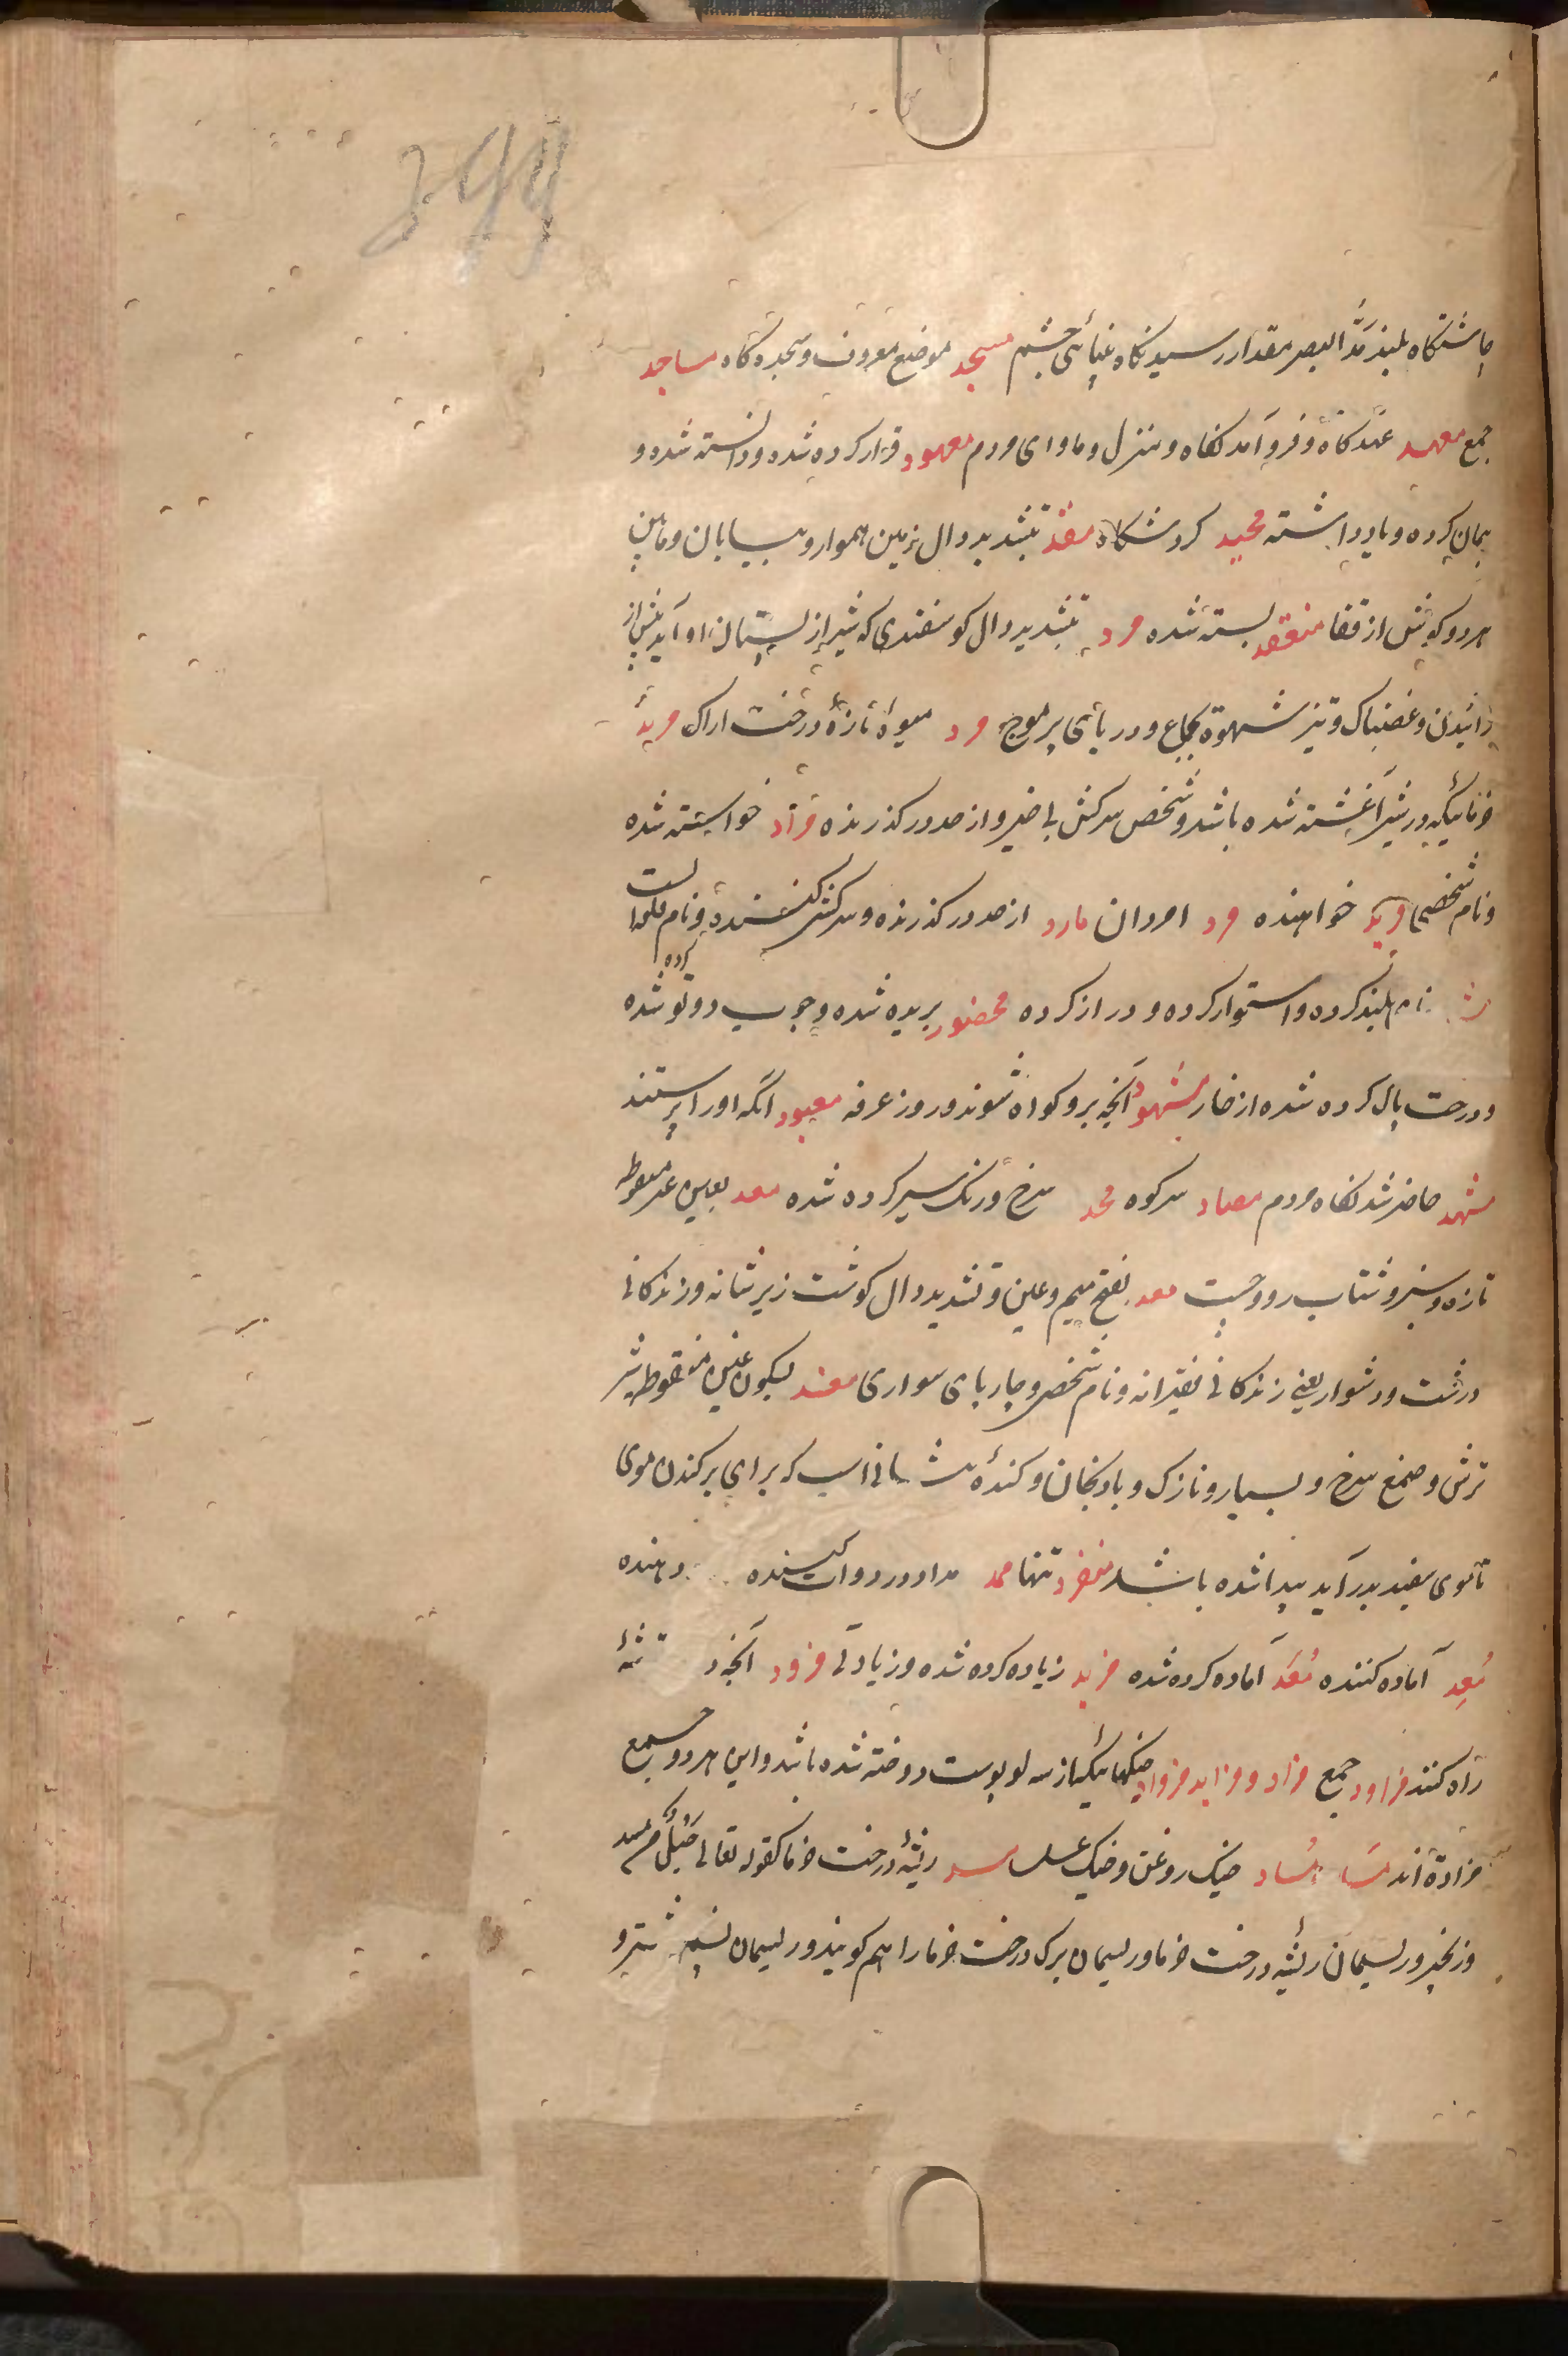 چاشتگاه بلند مدّ البصر مقدار رسید نگاه بینائی چشم مسجد موضع معروف و سجده گاه مساجد
جمع معهد عهد گاه و فرود آمد نگاه و منزل و ماوای مردم معهود قرار کرده شده و دانسته شده و
پیمان کرده و یاد داشته محید گردشگاه بتشدید دال زمین هموار و بیابان و مابین
هر دو گوش از قفا منعقد بسته شده بتشدید دال گوسفندی که شیر از پستان او آید پیش از
زائیدن و غضبناک و تیز شهوة بجماع و دریای پر موج مرد میوهٔ تازهٔ درخت اراک مرید
خرمائیکه در شیر آغشته شده باشد و شخص سرکش بی خیر و از حد در گذرنده مراد خواسته شده
و نام شخصی مرید خواهنده مرد امردان مارد از حد در گذرنده و سرکشی کننده و نام قلعه است
بلند کرده و استوار کرده و دراز کرده بریده شده و چوب دوتو شده کرده
و درخت پاک کرده شده از خار مشهود آنچه برو گواه شوند و روز عرفه معبود آنکه او را پرستند
مشهد حاضر شد نگاه مردم مصاد سر کوه سرخ و رنگ سیر کرده شده معد بعین غیر منقوطه
تازه و سبز و شتاب رو و چست معد بفتح میم و عین و تشدید دال گوشت زیر شانه و زندگانی
درشت و دشوار یعنی زندگانی فقیرانه و نام شخصی و چارپای سواری مغد بسکون غین منقوطه
ترش و صمغ سرخ و بسیار و نازک و بادنجان و کندهٔ اسپ که برای برکندن موی
تا موی سفید بدر آید پیدا شده باشد منفرد تنها ممد مداد در دوات کننده دهنده
مُعِد آماده کننده مُعَد آماده کرده شده مزید زیاده کرده شده و زیادتی مزود آنچه در توشهٔ
راه کنند مزاود جمع مزاد و مزاید مزواد خیکهائیکه از سه لو پوست دوخته شده باشد و این هر دو جمع
مزاده اند مساد خیک روغن و خیک عسل مسد ریشهٔ درخت خرما کقوله تعالی حبل من مسد
و زنجیر و ریسمان ریشهٔ درخت خرما و ریسمان برگ درخت خرما را هم گویند و ریسمان پشم شتر و